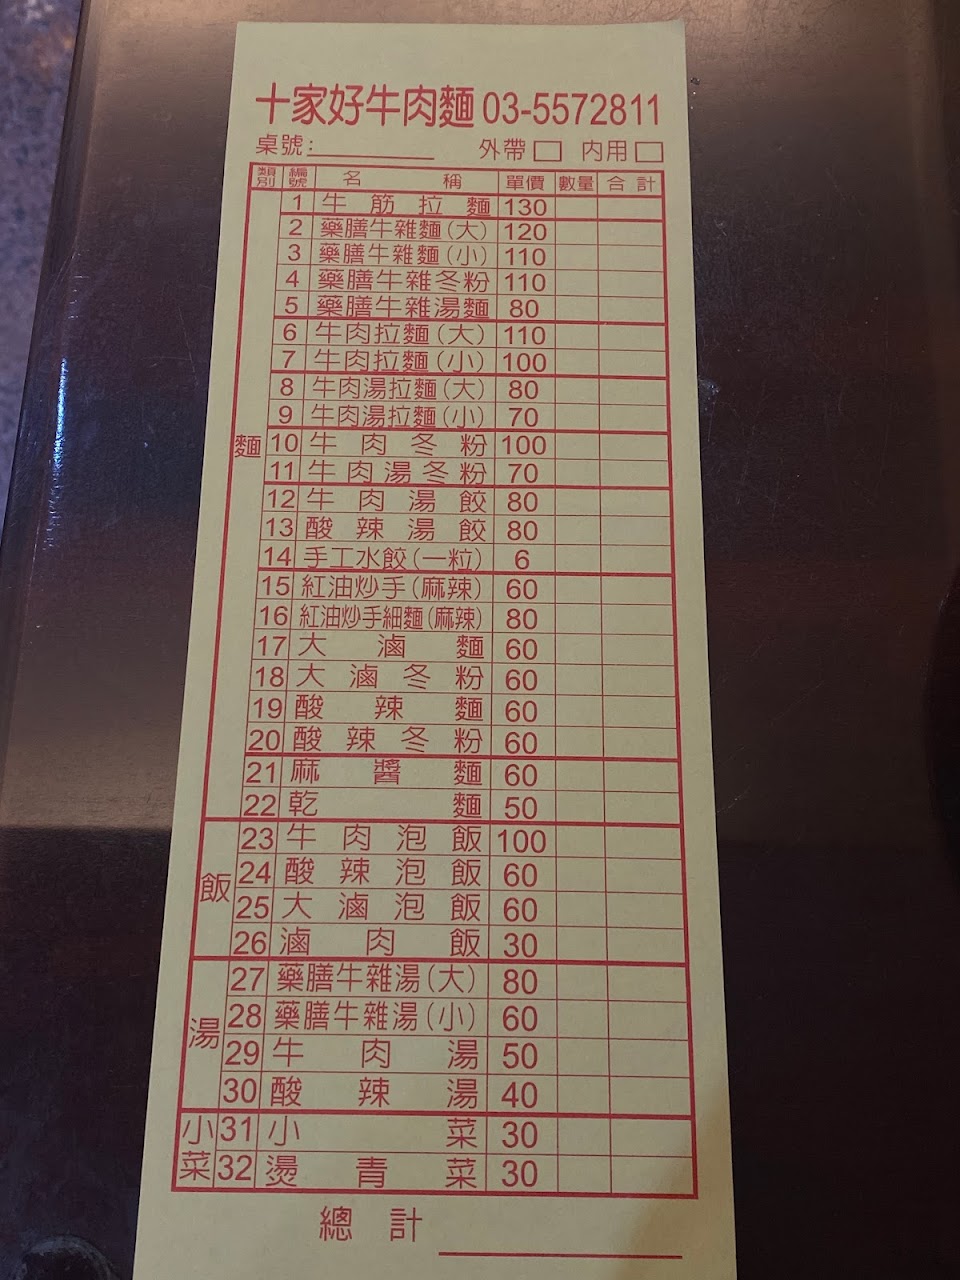 十家好牛肉麵 03-5572811
桌號: 外帶 □ 內用 □
類別 編號 名稱 單價 數量 合計
麵
1 牛筋拉麵 130
2 藥膳牛雜麵(大) 120
3 藥膳牛雜麵(小) 110
4 藥膳牛雜冬粉 110
5 藥膳牛雜湯麵 80
6 牛肉拉麵(大) 110
7 牛肉拉麵(小) 100
8 牛肉湯拉麵(大) 80
9 牛肉湯拉麵(小) 70
10 牛肉冬粉 100
11 牛肉湯冬粉 70
12 牛肉湯餃 80
13 酸辣湯餃 80
14 手工水餃(一粒) 6
15 紅油炒手(麻辣) 60
16 紅油炒手細麵(麻辣) 80
17 大滷麵 60
18 大滷冬粉 60
19 酸辣麵 60
20 酸辣冬粉 60
21 麻醬麵 60
22 乾麵 50
飯
23 牛肉泡飯 100
24 酸辣泡飯 60
25 大滷泡飯 60
26 滷肉飯 30
湯
27 藥膳牛雜湯(大) 80
28 藥膳牛雜湯(小) 60
29 牛肉湯 50
30 酸辣湯 40
小菜
31 小菜 30
32 燙青菜 30
總計